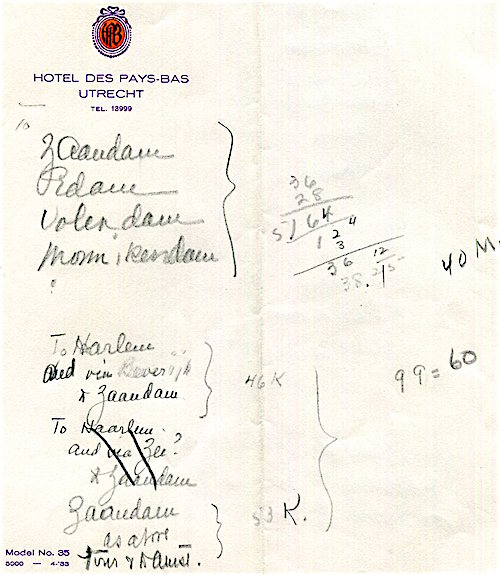 HOTEL DES PAYS-BAS
UTRECHT
TEL. 13999
To
Zaandam
Edam
Volendam
Monnikendam
36
28
5) 64 K
1 2 4
3
36 12
38. 2/5
40 M.
To Harlem
and via Beverijk
& Zaandam
46 K
99 = 60
To Haarlem
and via Zee?
& Zaandam
Zaandam
as above
53 K.
Model No. 35
5000 — 4-'33